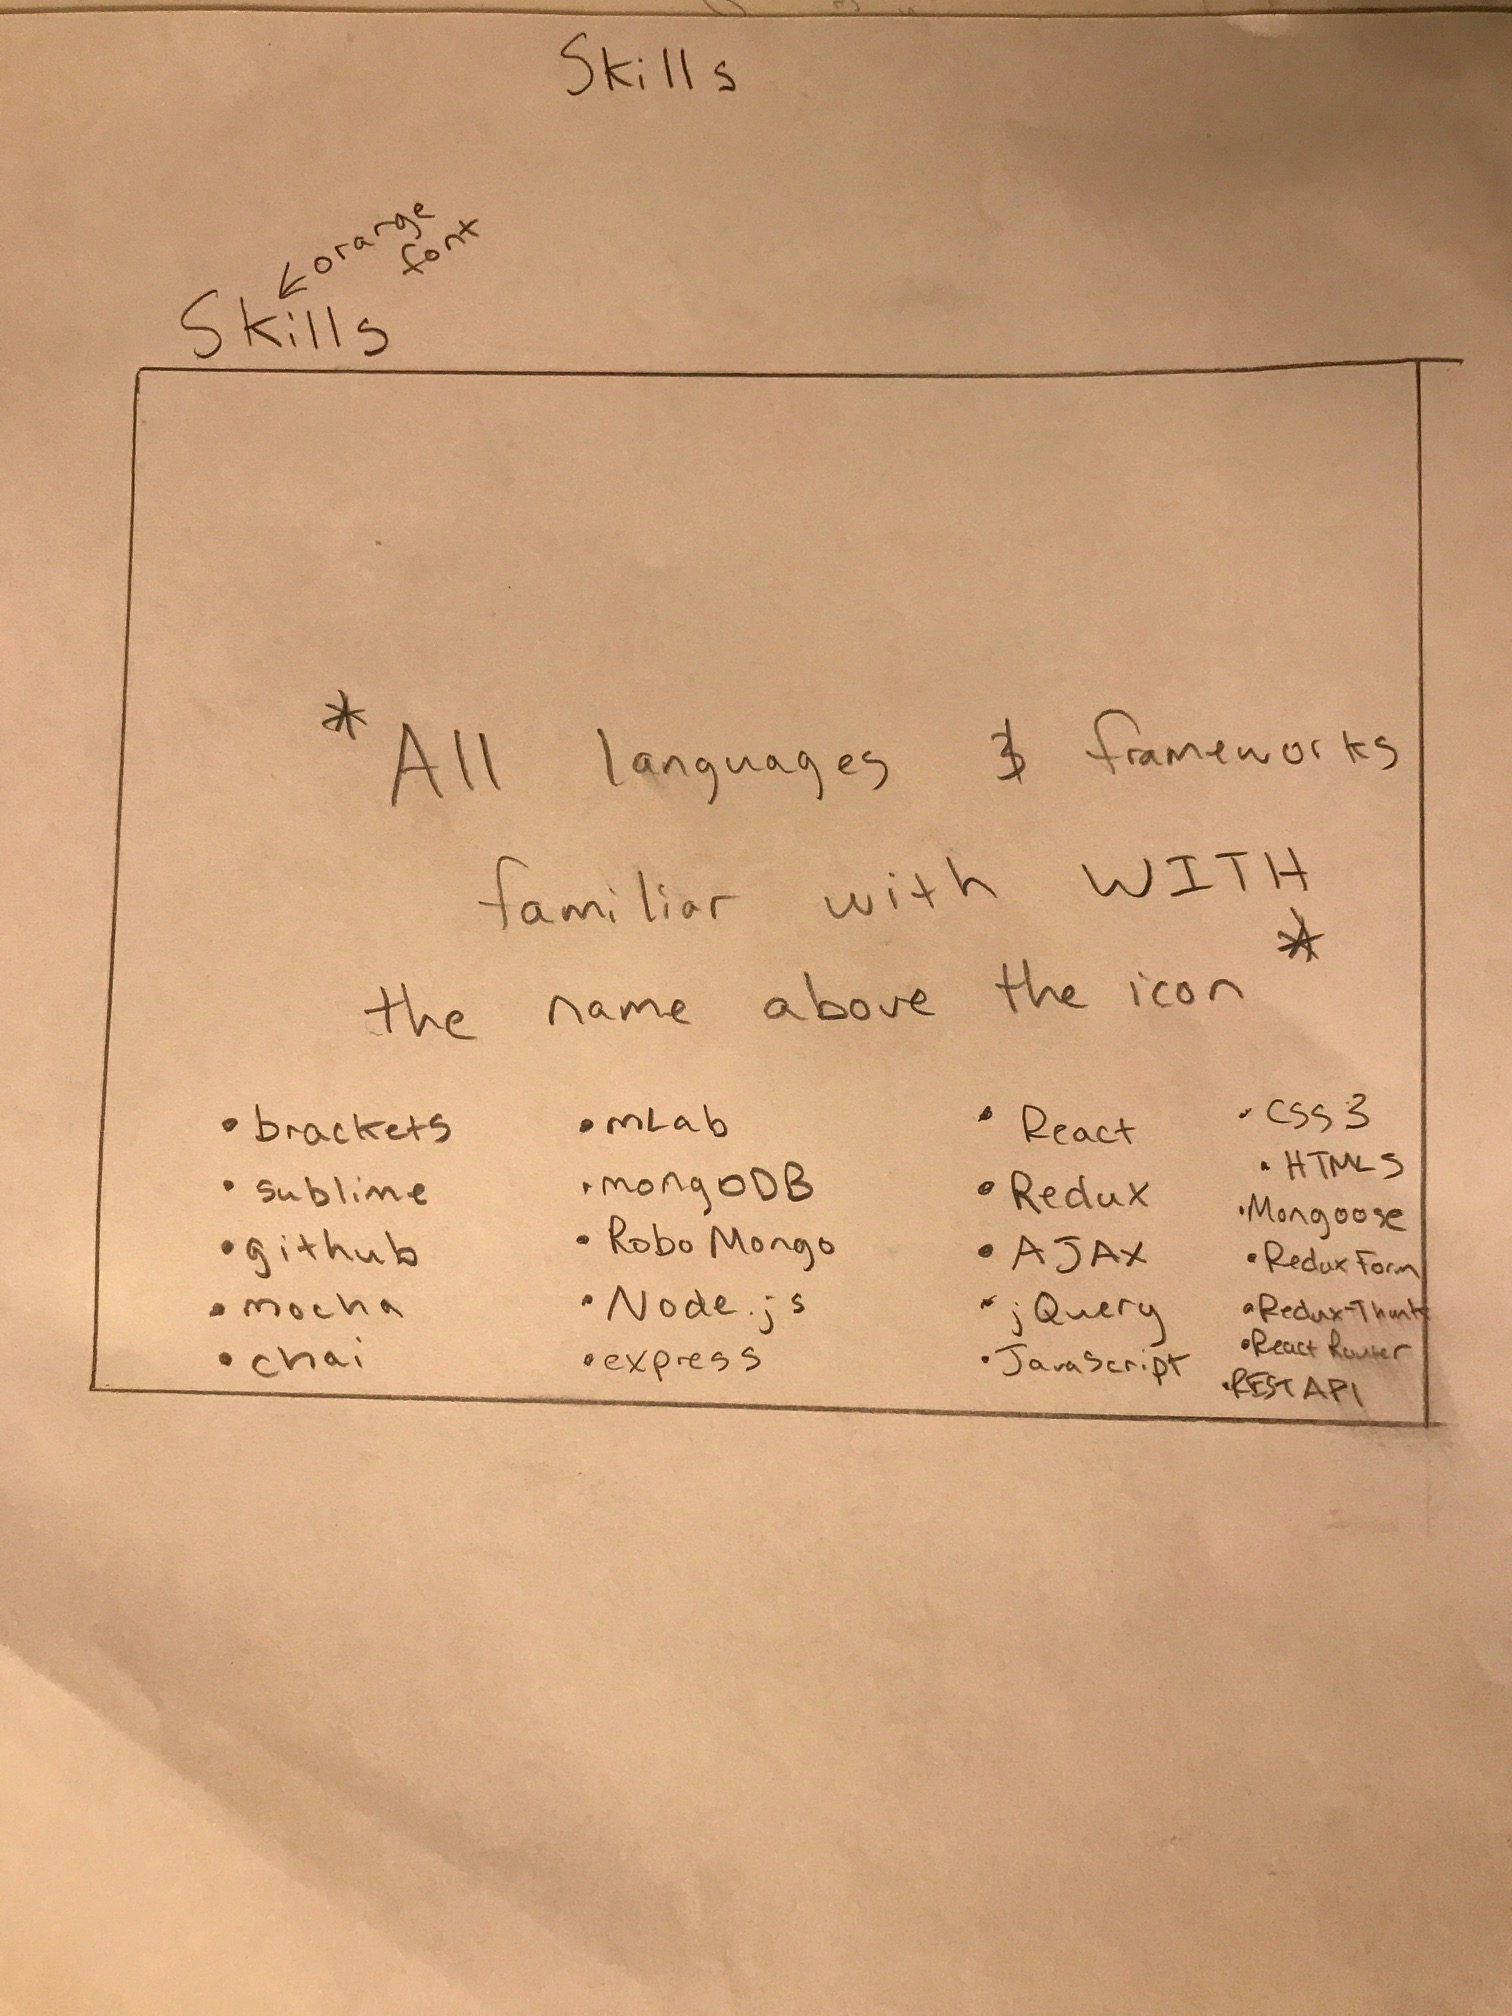 Skills
←orange
font
Skills
*All languages & frameworks
familiar with WITH
the name above the icon*
•brackets
•sublime
•github
•mocha
•chai
•mLab
•mongoDB
•Robo Mongo
•Node.js
•express
•React
•Redux
•AJAX
•jQuery
•JavaScript
•CSS3
•HTML5
•Mongoose
•Redux Form
•Redux-Thunk
•React Router
•REST API